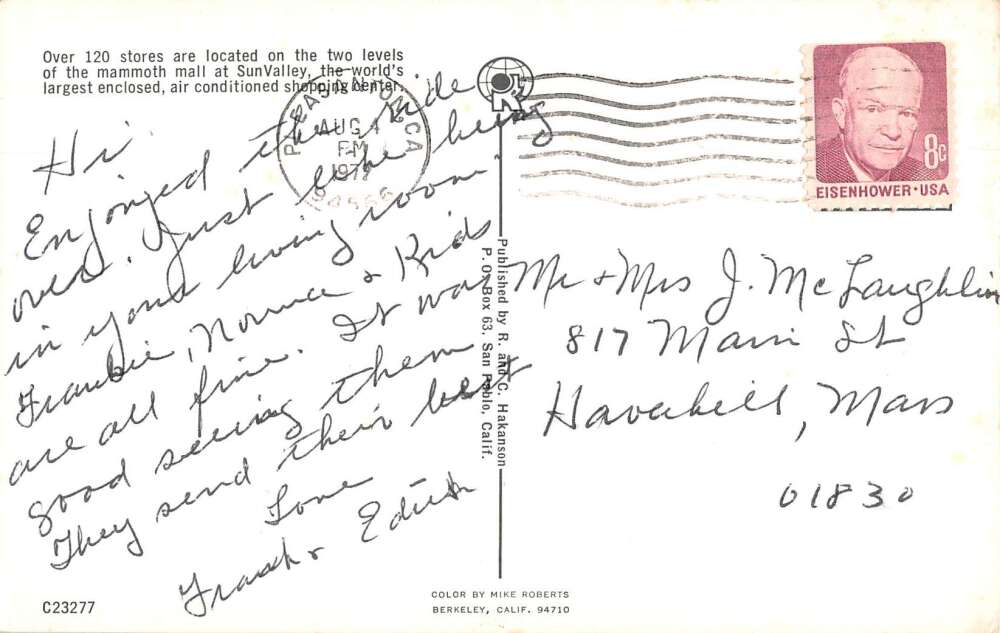 Over 120 stores are located on the two levels
of the mammoth mall at SunValley, the world's
largest enclosed, air conditioned shopping center.
Hi
Enjoyed the ride
over. Just like being
in your living room
Frankie, Norma & Kids
are all fine. It was
good seeing them
They send their best
Love
Frank & Edith
C23277
Published by R. and C. Hakanson
P.O. Box 63, San Pablo, Calif.
COLOR BY MIKE ROBERTS
BERKELEY, CALIF. 94710
AUG
PM
CA
94566
8c
EISENHOWER·USA
Mr & Mrs J. McLaughlin
817 Main St
Haverhill, Mass
01830